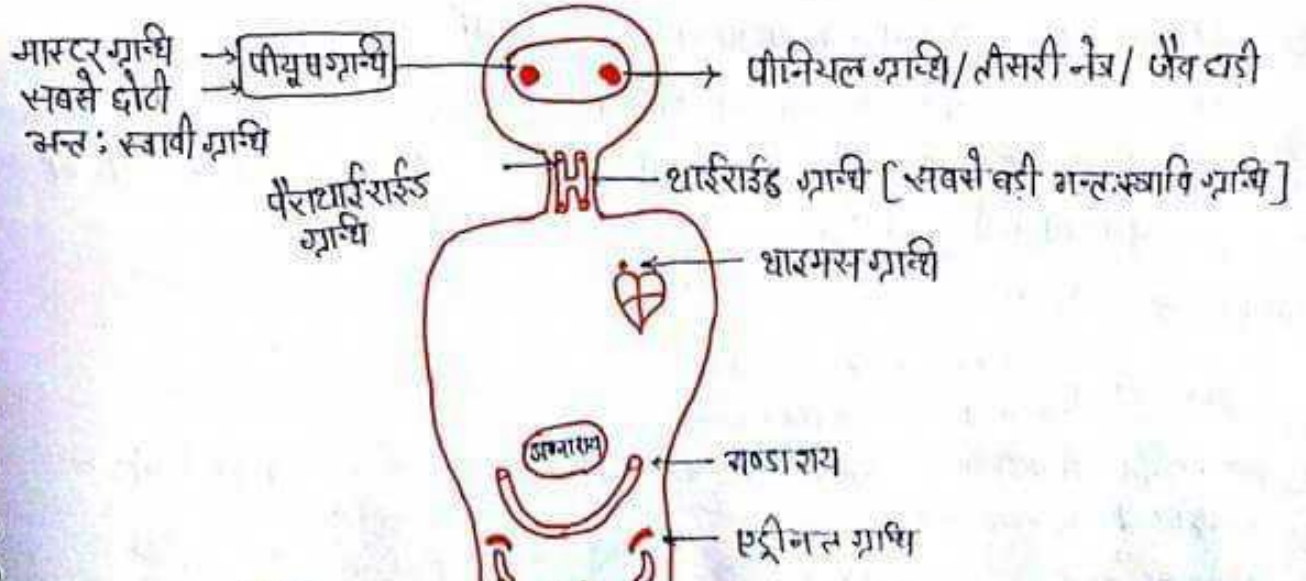 मास्टर ग्रान्थि
सबसे छोटी
अन्त: स्त्रावी ग्रान्थि
पीयूषग्रान्थि
पीनियल ग्रान्थि / तीसरी नेत्र / जैव घड़ी
पैराथाईराईड
ग्रान्थि
थाईराईड ग्रान्थि [सबसे बड़ी अन्त:स्त्रावि ग्रान्थि]
थाइमस ग्रान्थि
अग्नाशय
एड्रीनल ग्रान्थि